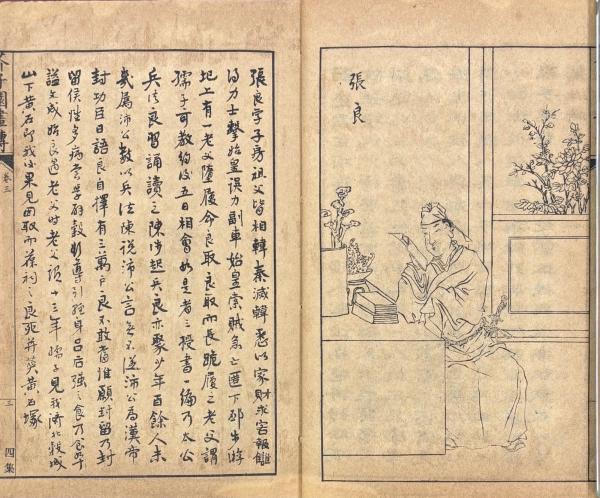 張良
張良字子房祖父皆相韓秦滅韓悉以家財求客報讎
得力士擊始皇誤中副車始皇索賊急亡匿下邳步游
圯上有一老父墮履令良取良取而長跪履之老父謂
孺子可教約後五日相會如是者三授書一編乃太公
兵法良習誦讀之陳涉起兵良亦聚少年百餘人未
幾屬沛公數以兵法陳說沛公言無不從沛公為漢帝
封功臣曰語良自擇有三萬戶良不敢當惟願封留乃封
留侯性多病嘗學辟穀導引輕身呂后強之食乃食卒
謚文成始良過老父時老父謂十三年孺子見我濟北穀城
山下黃石即我後果見因取而葆祠之良死并葬黃石塚
芥子園畫傳
卷三
三
四集